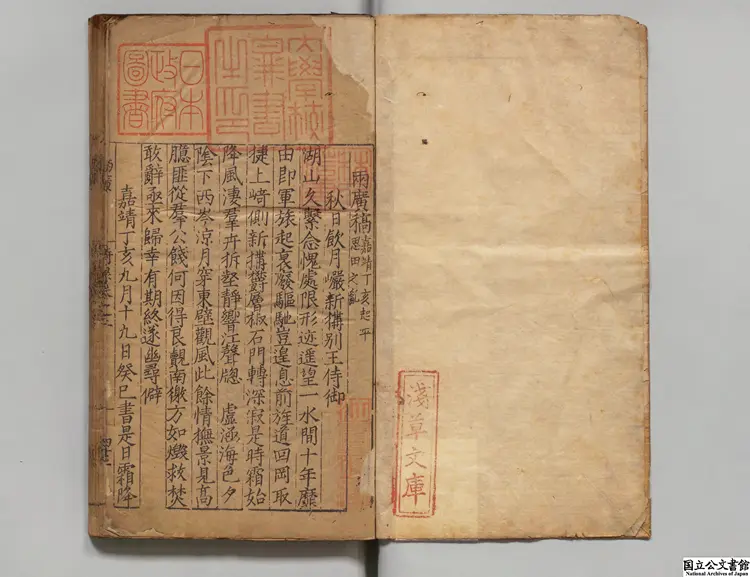 淺草文庫
大學校
圖書
之印
日本
政府
圖書
兩廣稿
嘉靖丁亥起平
思田之亂
秋日飲月巖新搆別王侍御
湖山久繫念愧處限形迹遥望一水間十年靡
由即軍旅起衰廢驅馳豈遑息前旌道回岡取
捷上崎側新搆欝層椒石門轉深寂是時霜始
降風淒羣卉拆壑靜響江聲牕 虛涵海色夕
隂下西岑凉月穿東壁觀風此餘情撫景見高
臆匪從羣公餞何因得良覿南徼方如燬救焚
敢辭亟來歸幸有期終遂幽尋僻
嘉靖丁亥九月十九日癸巳書是日霜降
国立公文書館
National Archives of Japan